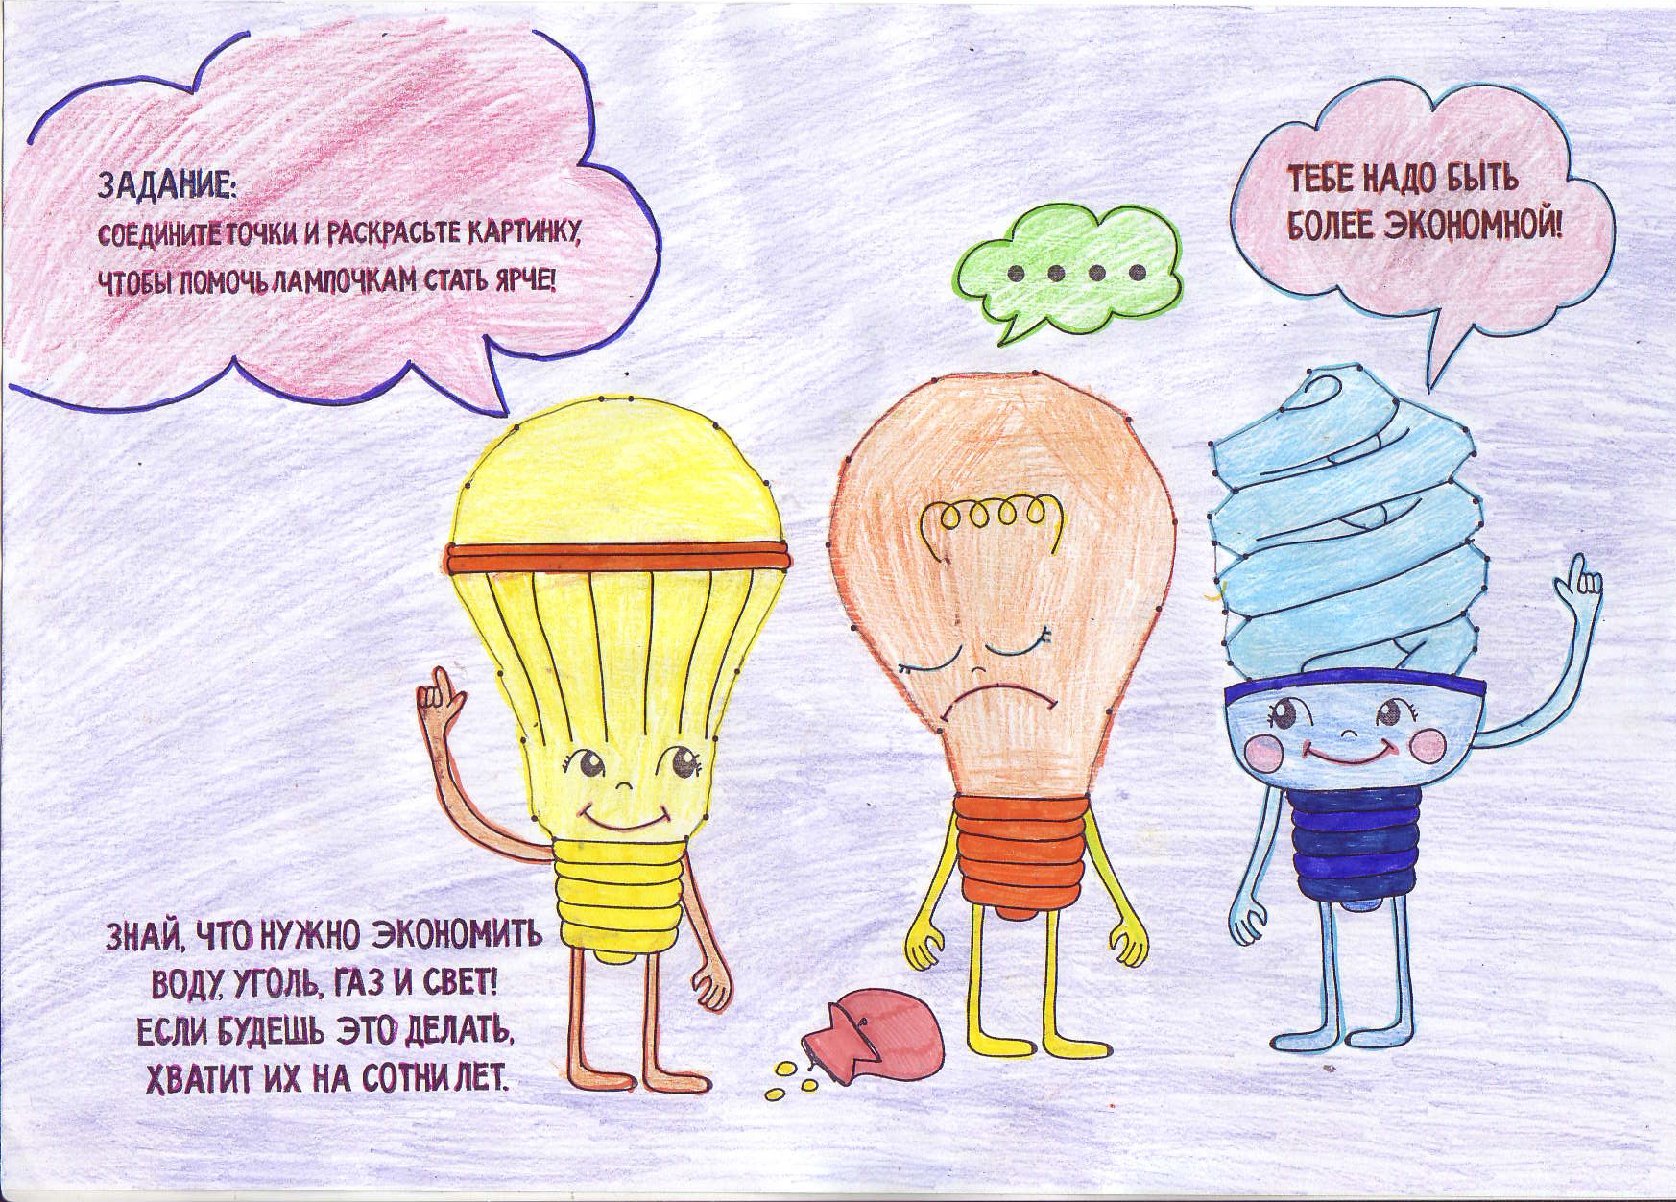 ЗАДАНИЕ:
СОЕДИНИТЕ ТОЧКИ И РАСКРАСЬТЕ КАРТИНКУ,
ЧТОБЫ ПОМОЧЬ ЛАМПОЧКАМ СТАТЬ ЯРЧЕ!
....
ТЕБЕ НАДО БЫТЬ
БОЛЕЕ ЭКОНОМНОЙ!
ЗНАЙ, ЧТО НУЖНО ЭКОНОМИТЬ
ВОДУ, УГОЛЬ, ГАЗ И СВЕТ!
ЕСЛИ БУДЕШЬ ЭТО ДЕЛАТЬ,
ХВАТИТ ИХ НА СОТНИ ЛЕТ.